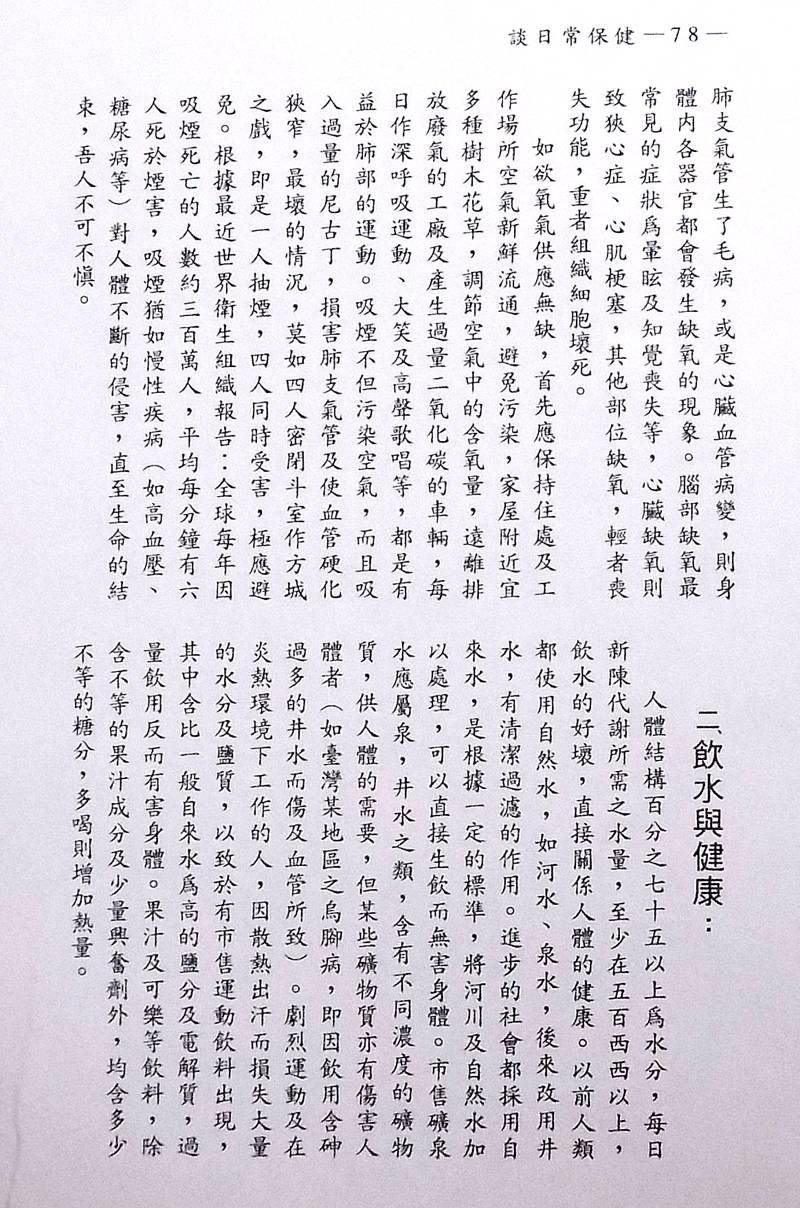 談日常保健—78—
肺支氣管生了毛病，或是心臟血管病變，則身
體內各器官都會發生缺氧的現象。腦部缺氧最
常見的症狀爲暈眩及知覺喪失等，心臟缺氧則
致狹心症、心肌梗塞，其他部位缺氧，輕者喪
失功能，重者組織細胞壞死。
如欲氧氣供應無缺，首先應保持住處及工
作場所空氣新鮮流通，避免污染，家屋附近宜
多種樹木花草，調節空氣中的含氧量，遠離排
放廢氣的工廠及產生過量二氧化碳的車輛，每
日作深呼吸運動、大笑及高聲歌唱等，都是有
益於肺部的運動。吸煙不但污染空氣，而且吸
入過量的尼古丁，損害肺支氣管及使血管硬化
狹窄，最壞的情況，莫如四人密閉斗室作方城
之戲，即是一人抽煙，四人同時受害，極應避
免。根據最近世界衛生組織報告：全球每年因
吸煙死亡的人數約三百萬人，平均每分鐘有六
人死於煙害，吸煙猶如慢性疾病（如高血壓、
糖尿病等）對人體不斷的侵害，直至生命的結
束，吾人不可不愼。
二、飲水與健康：
人體結構百分之七十五以上爲水分，每日
新陳代謝所需之水量，至少在五百西西以上，
飲水的好壞，直接關係人體的健康。以前人類
都使用自然水，如河水、泉水，後來改用井
水，有清潔過濾的作用。進步的社會都採用自
來水，是根據一定的標準，將河川及自然水加
以處理，可以直接生飲而無害身體。市售礦泉
水應屬泉，井水之類，含有不同濃度的礦物
質，供人體的需要，但某些礦物質亦有傷害人
體者（如臺灣某地區之烏腳病，即因飲用含砷
過多的井水而傷及血管所致）。劇烈運動及在
炎熱環境下工作的人，因散熱出汗而損失大量
的水分及鹽質，以致於有市售運動飲料出現，
其中含比一般自來水爲高的鹽分及電解質，過
量飲用反而有害身體。果汁及可樂等飲料，除
含不等的果汁成分及少量興奮劑外，均含多少
不等的糖分，多喝則增加熱量。